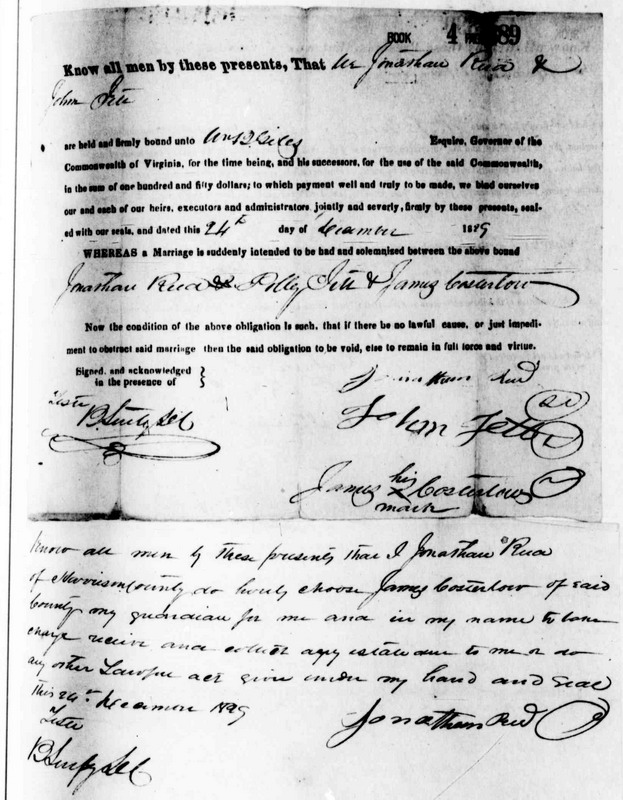 BOOK 4 PAGE 89
Know all men by these presents, That We Jonathan Reed &
John Jett
are held and firmly bound unto Wm B. Giles Esquire, Governor of the
Commonwealth of Virginia, for the time being, and his successors, for the use of the said Commonwealth,
in the sum of one hundred and fifty dollars; to which payment well and truly to be made, we bind ourselves
our and each of our heirs, executors and administrators jointly and severly, firmly by these presents, seal-
ed with our seals, and dated this 24th day of Decamber 1829
WHEREAS a Marriage is suddenly intended to be had and solemnised between the above bound
Jonathan Reed & Polly Jett & James Costerlow
Now the condition of the above obligation is such, that if there be no lawful cause, or just impedi-
ment to obstruct said marriage then the said obligation to be void, else to remain in full force and virtue.
Signed, and acknowledged
in the presence of
Teste
Jonathan Reed
John Jett
James his Costerlow
x
mark
Know all men by these presents that I Jonathan Reed
of Morrison County do hereby choose James Costerlow of said
County my guardian for me and in my name to take
charge receive and collect any estate due to me or do
any other Lawfull act given under my hand and Seal
this 24th Decamber 1829
Teste
Jonathan Reed